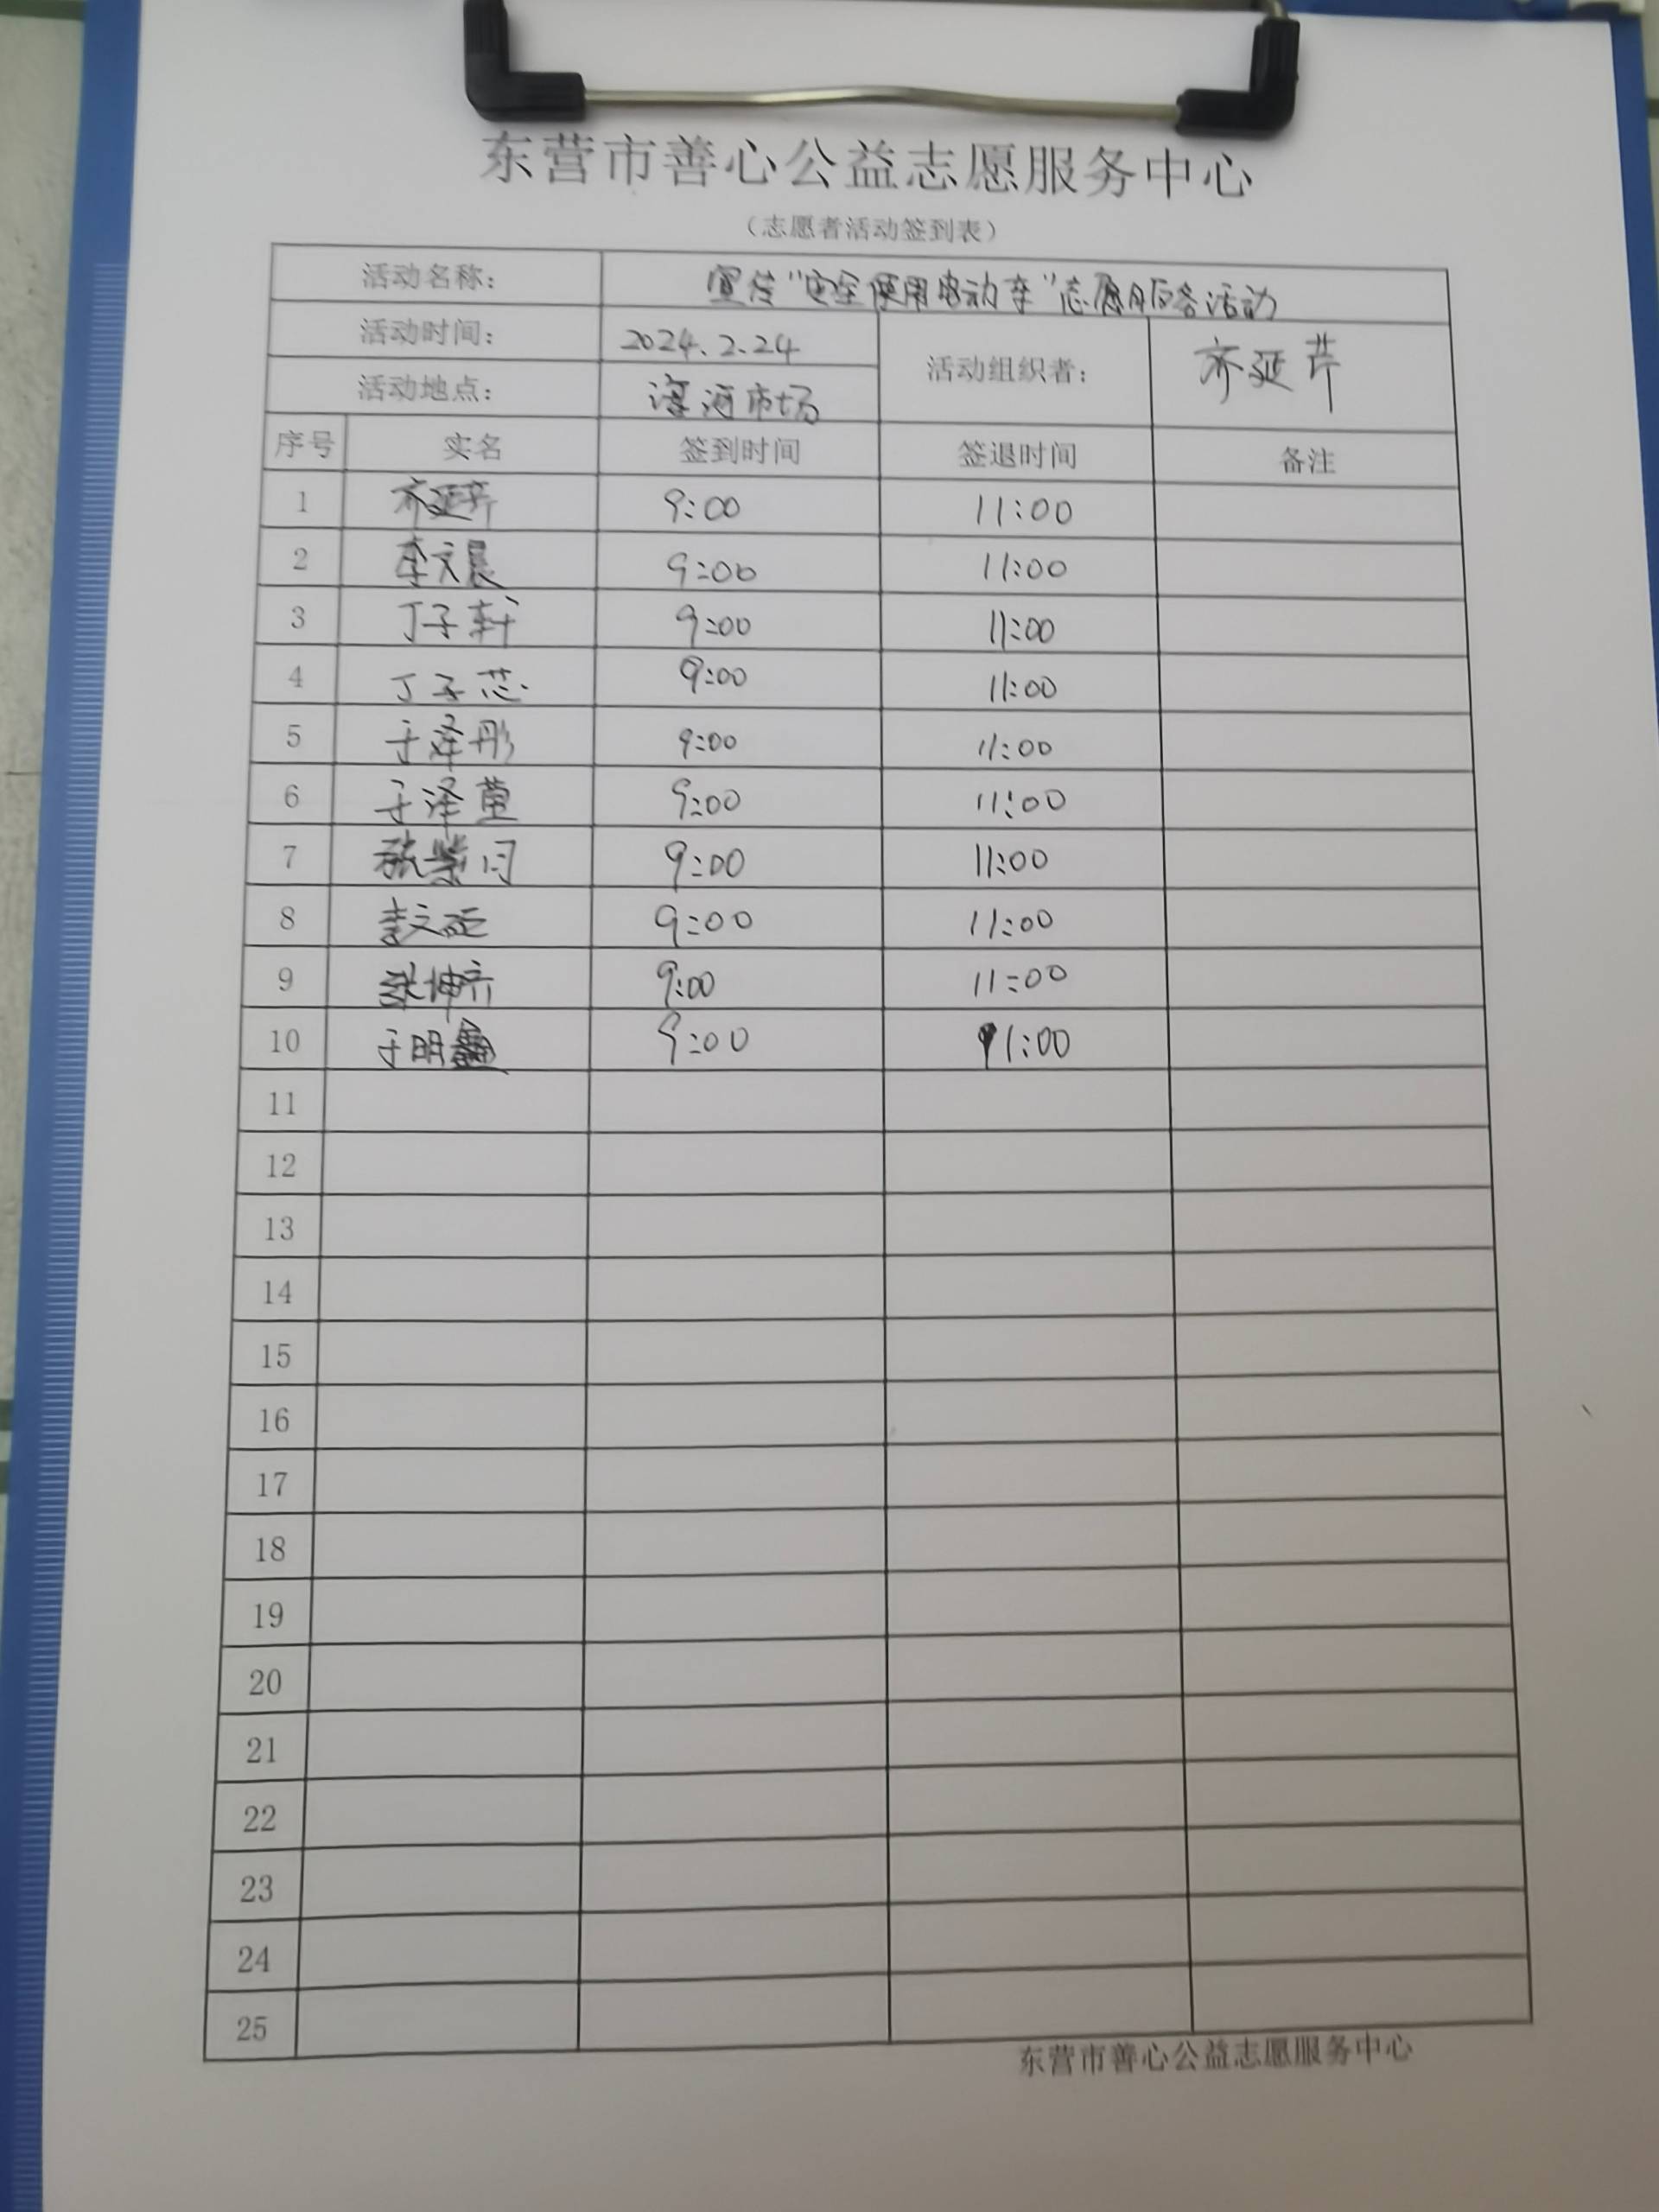 东营市善心公益志愿服务中心
（志愿者活动签到表）
活动名称： 宣传“安全使用电动车”志愿服务活动
活动时间： 2024.2.24 活动组织者： 齐延芹
活动地点： 河市场
序号 实名 签到时间 签退时间 备注
1 齐延芹 9:00 11:00
2 李文晨 9:00 11:00
3 丁子轩 9:00 11:00
4 丁子芯 9:00 11:00
5 于泽彤 9:00 11:00
6 于泽萱 9:00 11:00
7 9:00 11:00
8 李文 9:00 11:00
9 张坤齐 9:00 11:00
10 于明鑫 9:00 11:00
11
12
13
14
15
16
17
18
19
20
21
22
23
24
25
东营市善心公益志愿服务中心